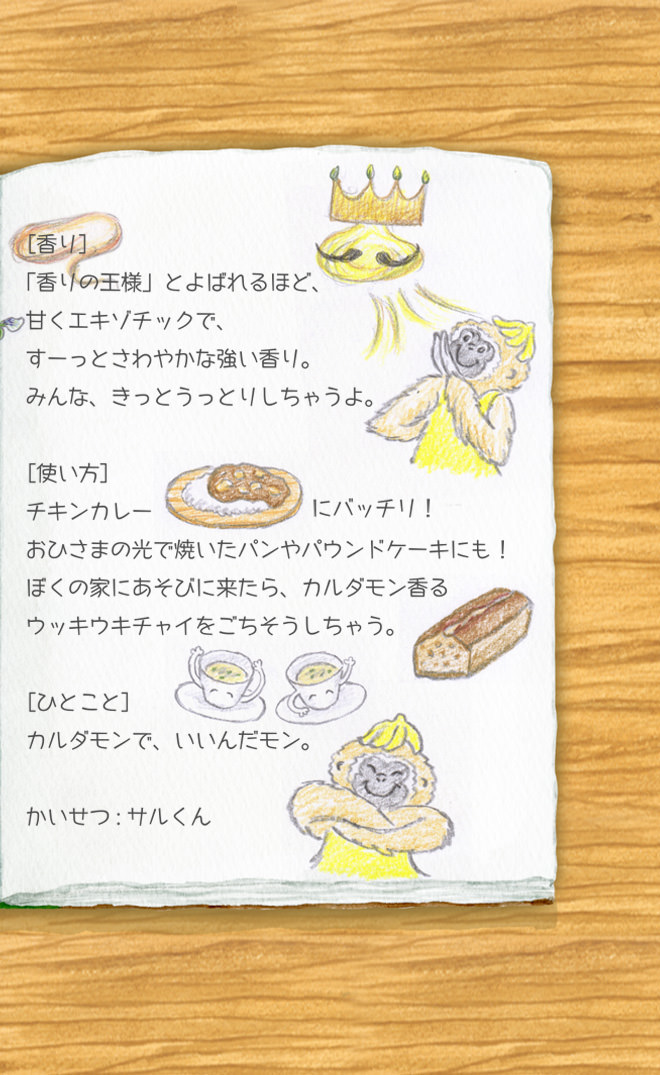 [香り]
「香りの王様」とよばれるほど、
甘くエキゾチックで、
すーっとさわやかな強い香り。
みんな、きっとうっとりしちゃうよ。
[使い方]
チキンカレー にバッチリ！
おひさまの光で焼いたパンやパウンドケーキにも！
ぼくの家にあそびに来たら、カルダモン香る
ウッキウキチャイをごちそうしちゃう。
[ひとこと]
カルダモンで、いいんだモン。
かいせつ：サルくん